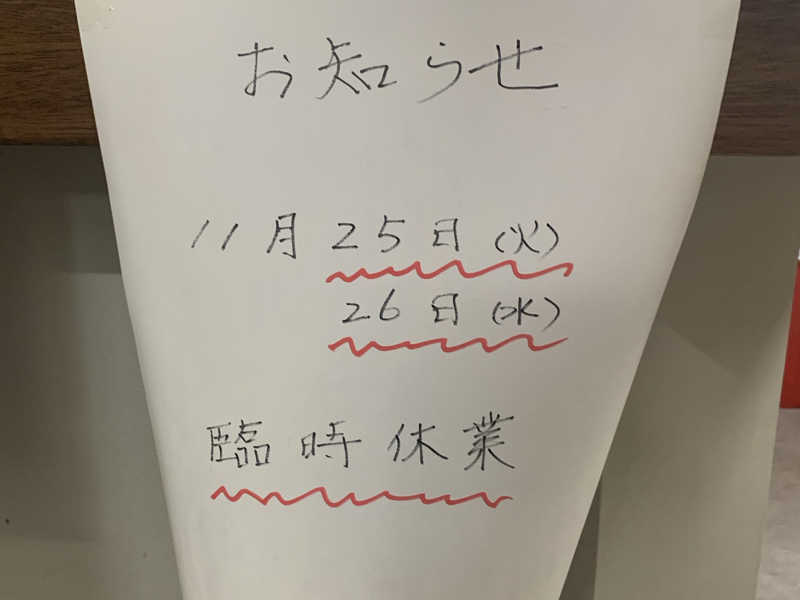 お知らせ
11月25日(火)
26日(水)
臨時休業